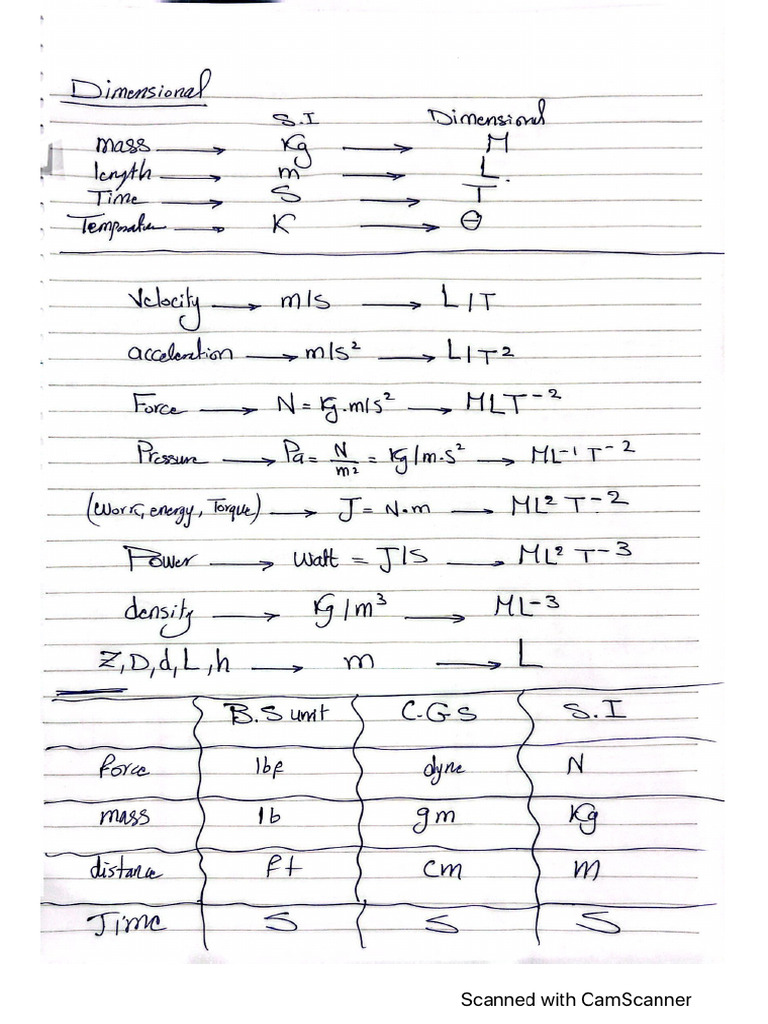 Dimensional
S.I Dimensional
mass → Kg → M
length → m → L
Time → S → T
Temperature → K → θ
Velocity → m/s → L/T
acceleration → m/s² → L/T²
Force → N = Kg.m/s² → MLT⁻²
Pressure → Pa = N/m² = Kg/m.s² → ML⁻¹T⁻²
(Work, energy, Torque) → J = N.m → ML²T⁻²
Power → Watt = J/S → ML²T⁻³
density → Kg/m³ → ML⁻³
Z, D, d, L, h → m → L
B.S unit C.G.S S.I
force lbf dyne N
mass lb gm Kg
distance ft cm m
Time S S S
Scanned with CamScanner